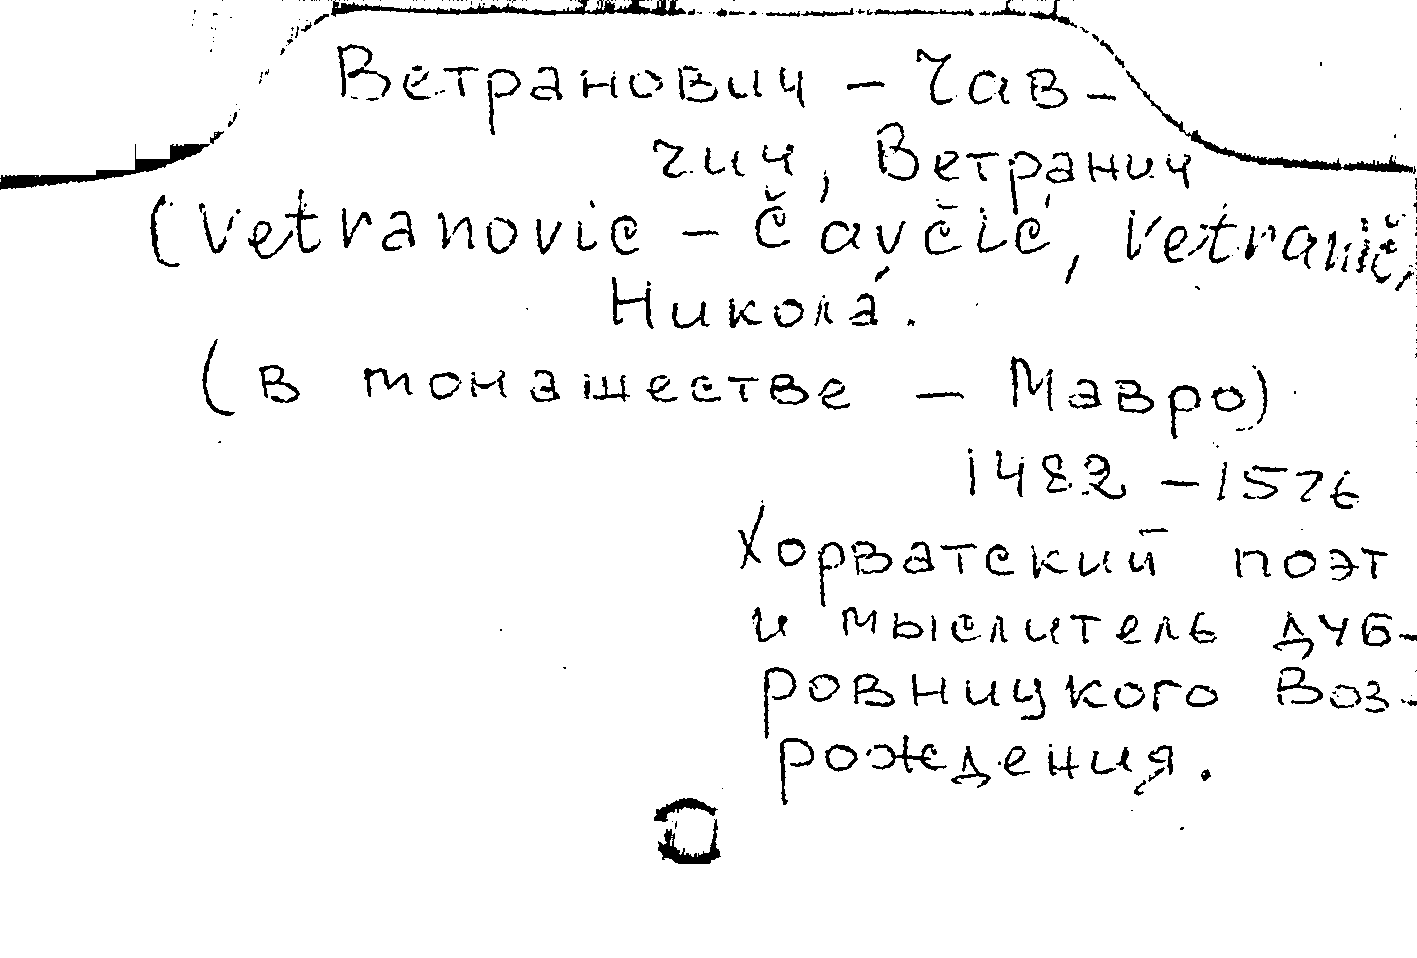 Ветранович - Чав-
чич, Ветранич
(Vetranovic - Čavčić, Vetranič,
Никола́.
(в монашестве - Мавро)
1482 - 1576
Хорватский поэт
и мыслитель дуб-
ровницкого Воз-
рождения.